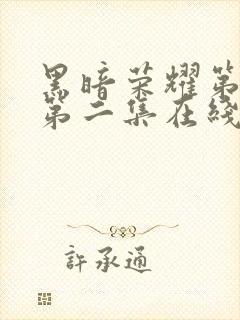 黑暗荣耀第
第二集在线
許承通